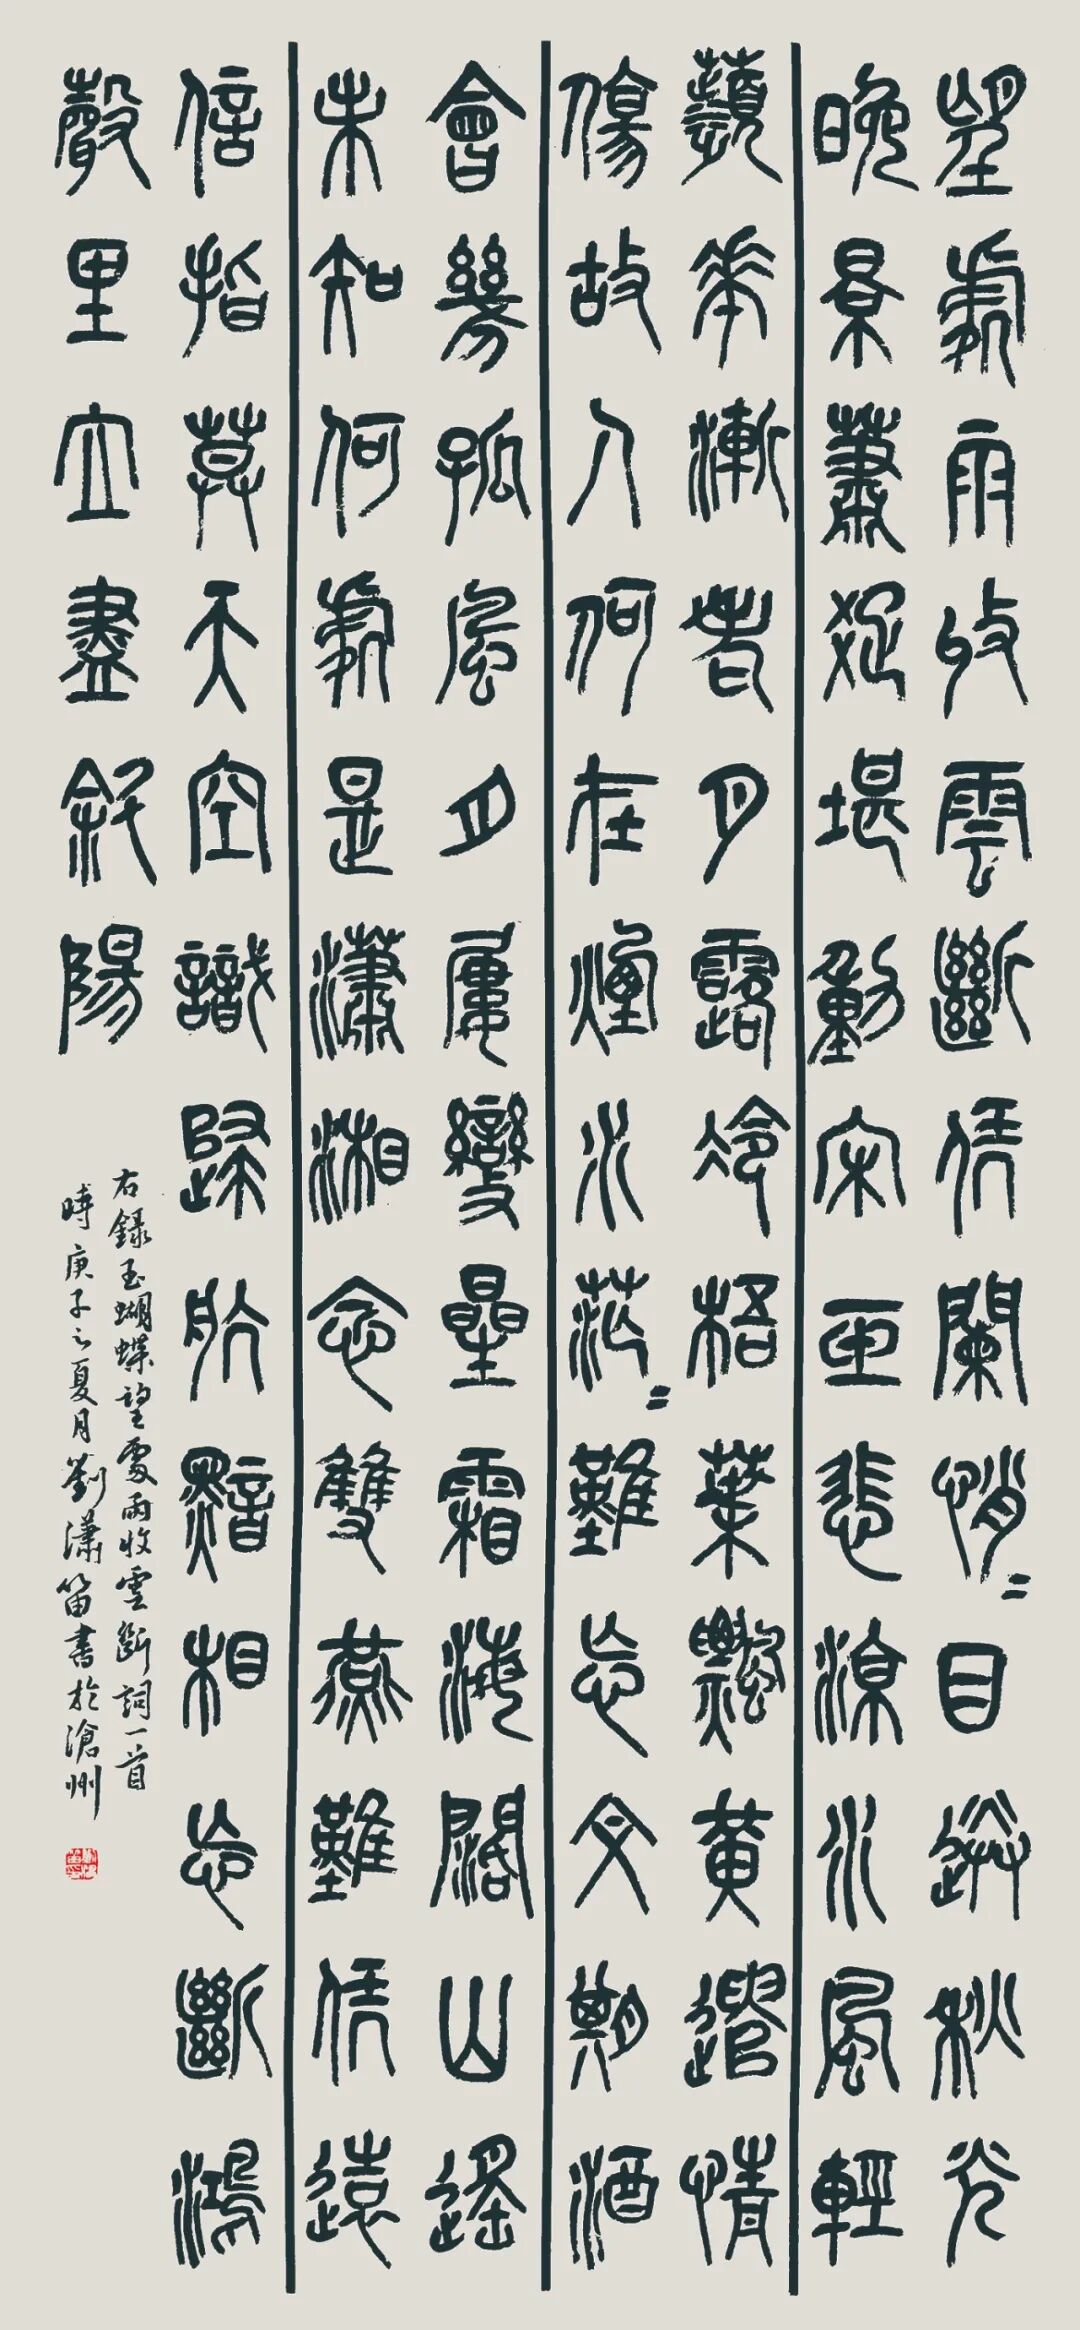 望處雨收雲斷凭闌悄〻目送秋光
晚景蕭疏堪動宋玉悲涼水風輕
蘋花漸老月露冷梧葉飄黃遣情
傷故人何在煙水茫〻難忘文期酒
會幾孤風月屢變星霜海闊山遙
未知何處是瀟湘念雙燕難凭遠
信指莫天空識歸航黯相忘斷鴻
聲里立盡斜陽
右錄玉蝴蝶望處雨收雲斷詞一首
時庚子之夏月劉瀟笛書於滄州